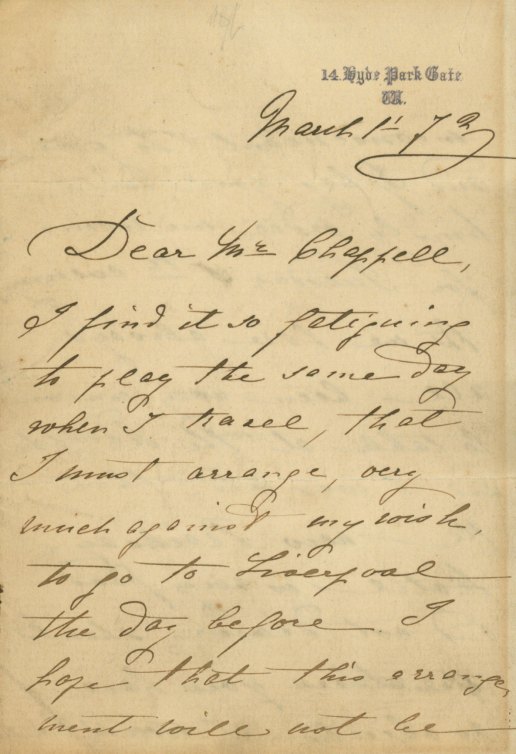 14. Hyde Park Gate
W.
March 1st 72
Dear Mr Chappell,
I find it so fatiguing
to play the same day
when I travel, that
I must arrange, very
much against my wish,
to go to Liverpool
the day before. I
hope that this arrange,
ment will not be